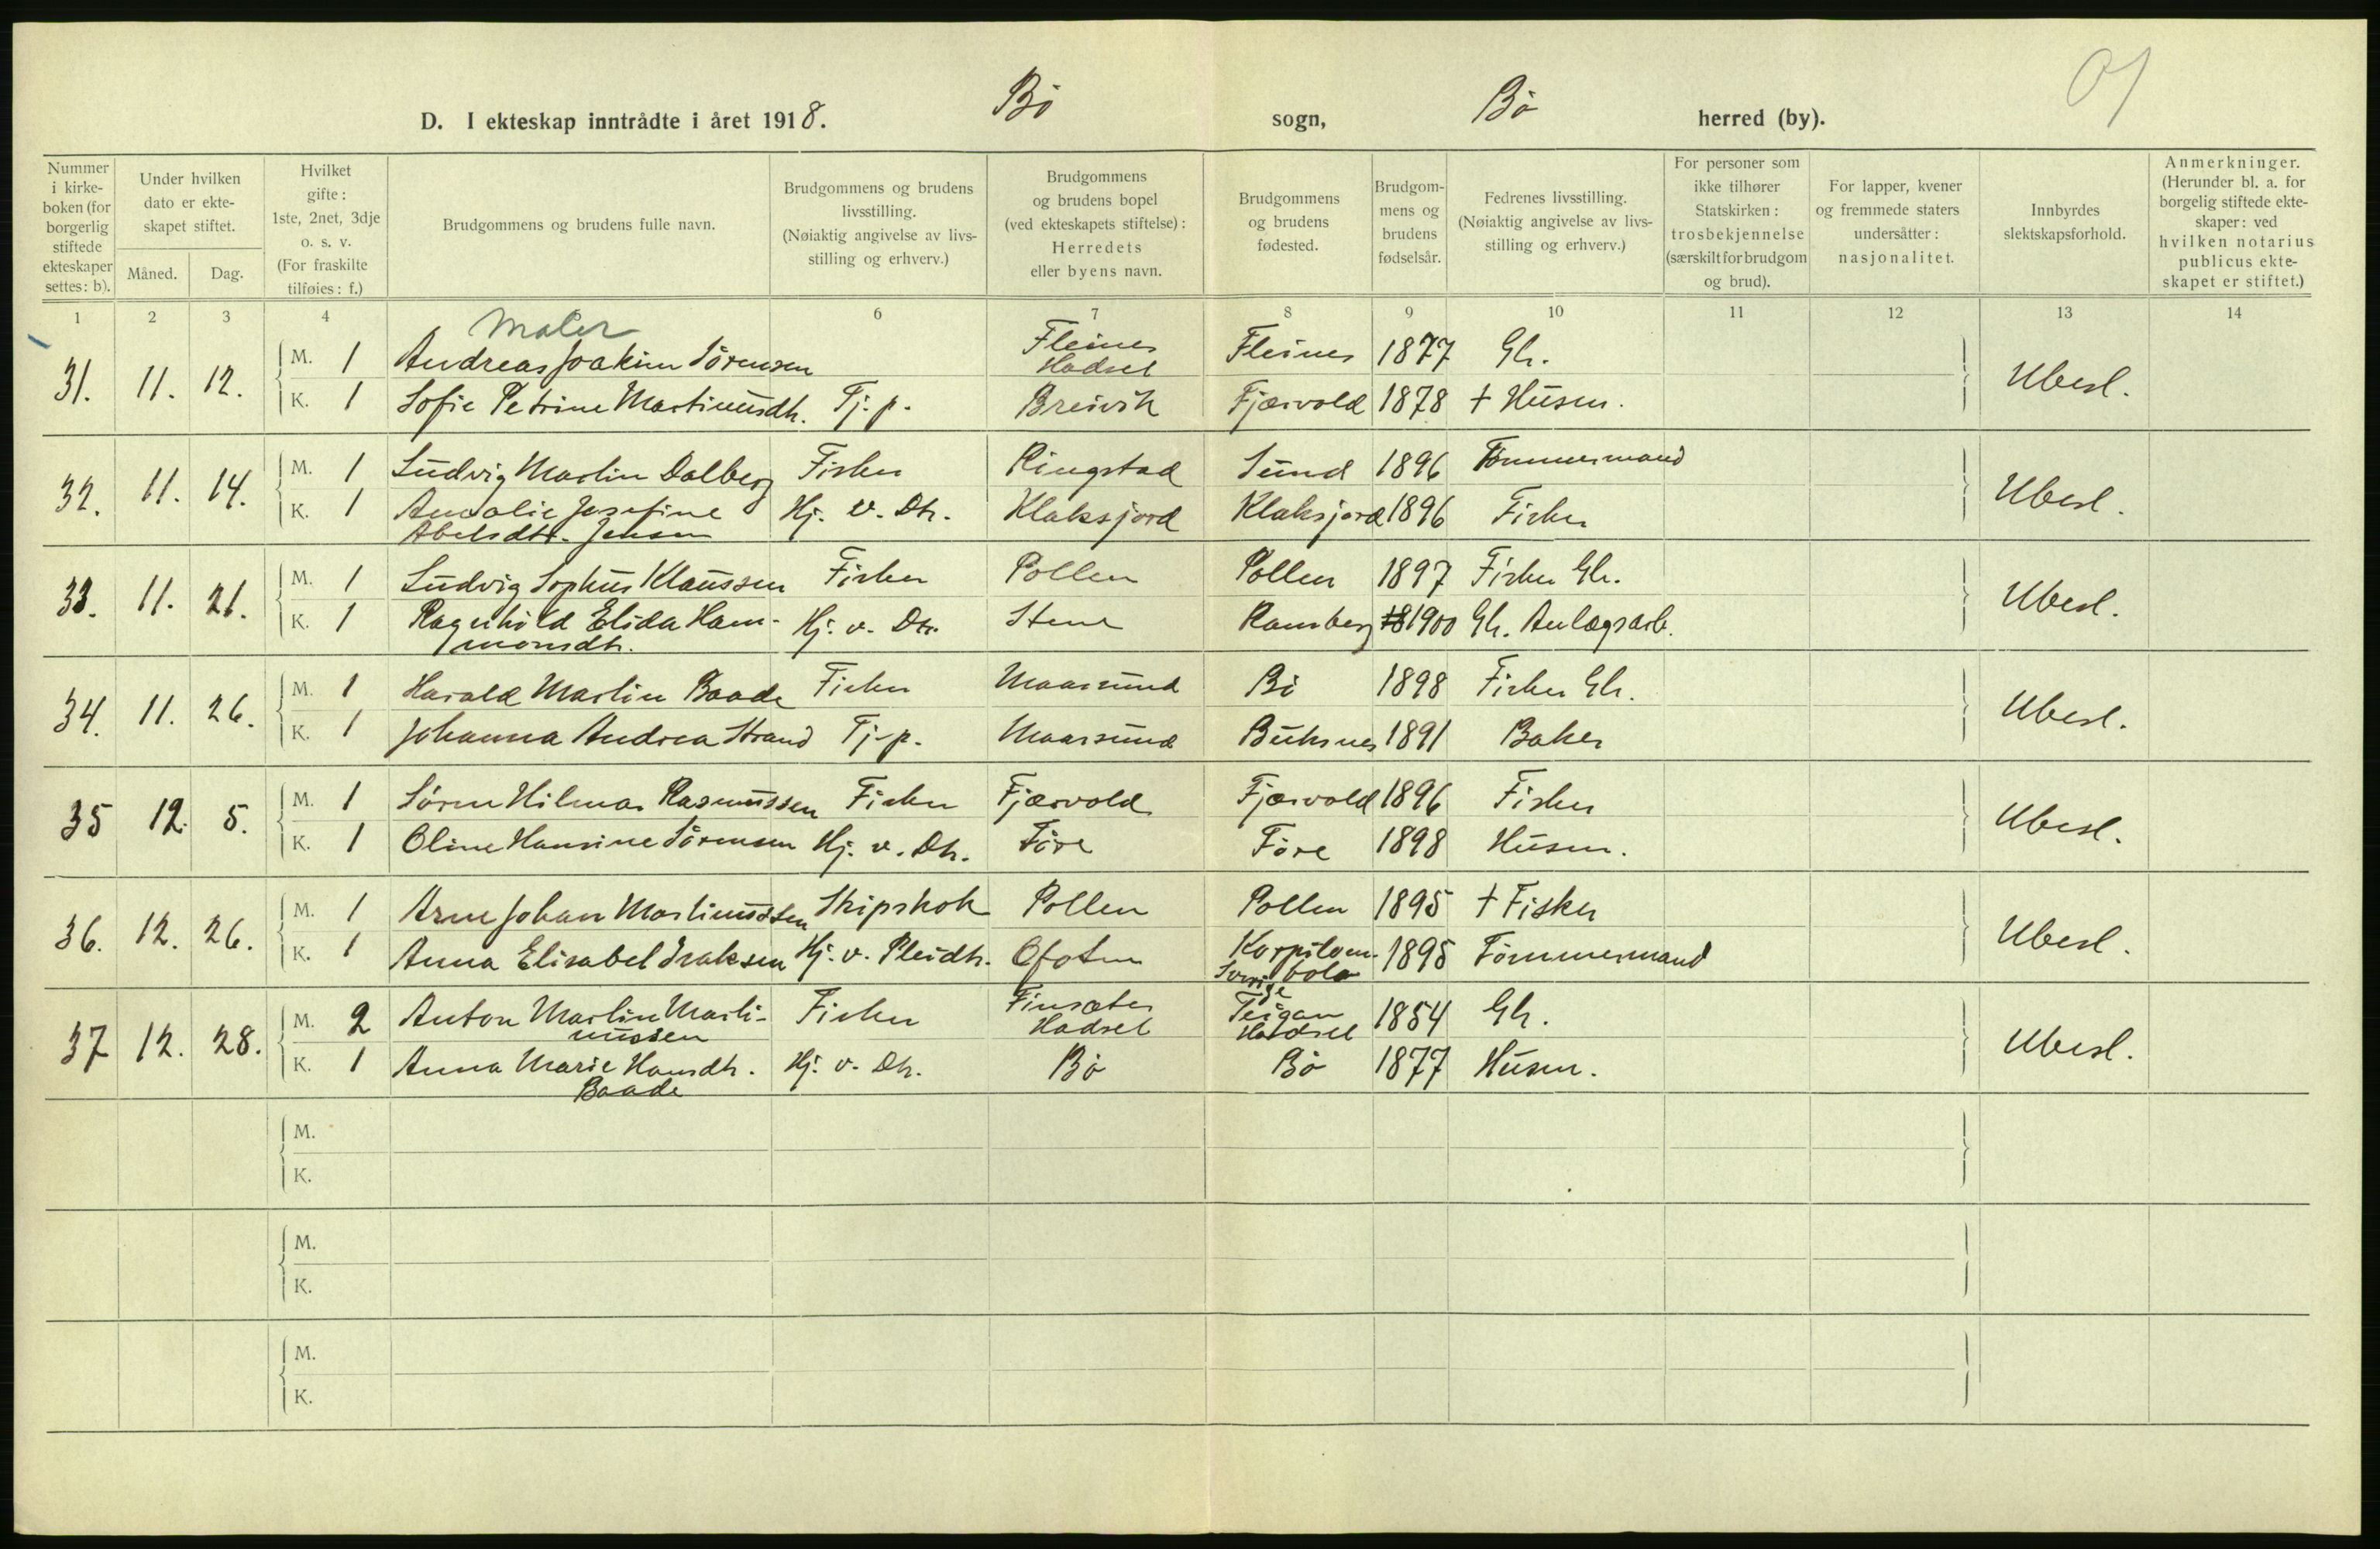 D. I ekteskap inntrådte i året 1918. Bø sogn, Bø herred (by).
Nummer i kirke-boken (for borgerlig stiftede ekteskaper settes: b).
Under hvilken dato er ekte-skapet stiftet.
Måned. Dag.
Hvilket gifte: 1ste, 2net, 3dje o. s. v. (For fraskilte tilføies: f.)
Brudgommens og brudens fulle navn.
Brudgommens og brudens livsstilling. (Nøiaktig angivelse av livs-stilling og erhverv.)
Brudgommens og brudens bopel (ved ekteskapets stiftelse): Herredets eller byens navn.
Brudgommens og brudens fødested.
Brudgom-mens og brudens fødselsår.
Fedrenes livsstilling. (Nøiaktig angivelse av livs-stilling og erhverv.)
For personer som ikke tilhører Statskirken: trosbekjennelse (særskilt for brudgom og brud).
For lapper, kvener og fremmede staters undersåtter: nasjonalitet.
Innbyrdes slektskapsforhold.
Anmerkninger. (Herunder bl. a. for borgelig stiftede ekte-skaper: ved hvilken notarius publicus ekte-skapet er stiftet.)
1 2 3 4 6 7 8 9 10 11 12 13 14
Maler
31. 11. 12. M. 1 Andreas Joakim Sørensen Fleines Hadsel Fleines 1877 Gb. Ubesl.
K. 1 Sofie Petrine Martinusdtr. Tj. p. Breivik Fjærvold 1878 + Husm.
32. 11. 14. M. 1 Ludvig Martin Dalberg Fisker Ringstad Sund 1896 Tømmermand Ubesl.
K. 1 Amalie Josefine Hj. v. Dtr. Klaksjord Klaksjord 1896 Fisker
Abelsdtr. Jensen
33. 11. 21. M. 1 Ludvig Sophus Klaussen Fisker Pollen Pollen 1897 Fisker Gb. Ubesl.
K. 1 Ragnhild Elida Ham- Hj. v. Dtr. Stene Ramberg 18 1900 Gb. Anlægsarb.
monsdtr.
34. 11. 26. M. 1 Harald Martin Baade Fisker Maarsund Bø 1898 Fisker Gb. Ubesl.
K. 1 Johanna Andrea Strand Tj. p. Maarsund Buksnes 1891 Baker
35 12. 5. M. 1 Sören Hilmar Rasmussen Fisker Fjærvold Fjærvold 1896 Fisker Ubesl.
K. 1 Oline Hansine Sørensen Hj. v. Dtr. Føre Føre 1898 Husm.
36. 12. 26. M. 1 Arne Johan Martinussen Skipskok Pollen Pollen 1895 + Fisker Ubesl.
K. 1 Anna Elisabet Isaksen Hj. v. Pleidtr. Ofoten Korpilom-bolo Sverige 1895 Tømmermand
37 12. 28. M. 2 Anton Martin Marti- Fisker Finsæter Hadsel Teigan Hadsel 1854 Gb. Ubesl.
nussen
K. 1 Anna Marie Hansdtr. Hj. v. Dtr. Bø Bø 1877 Husm.
Baade
M.
K.
M.
K.
M.
K.